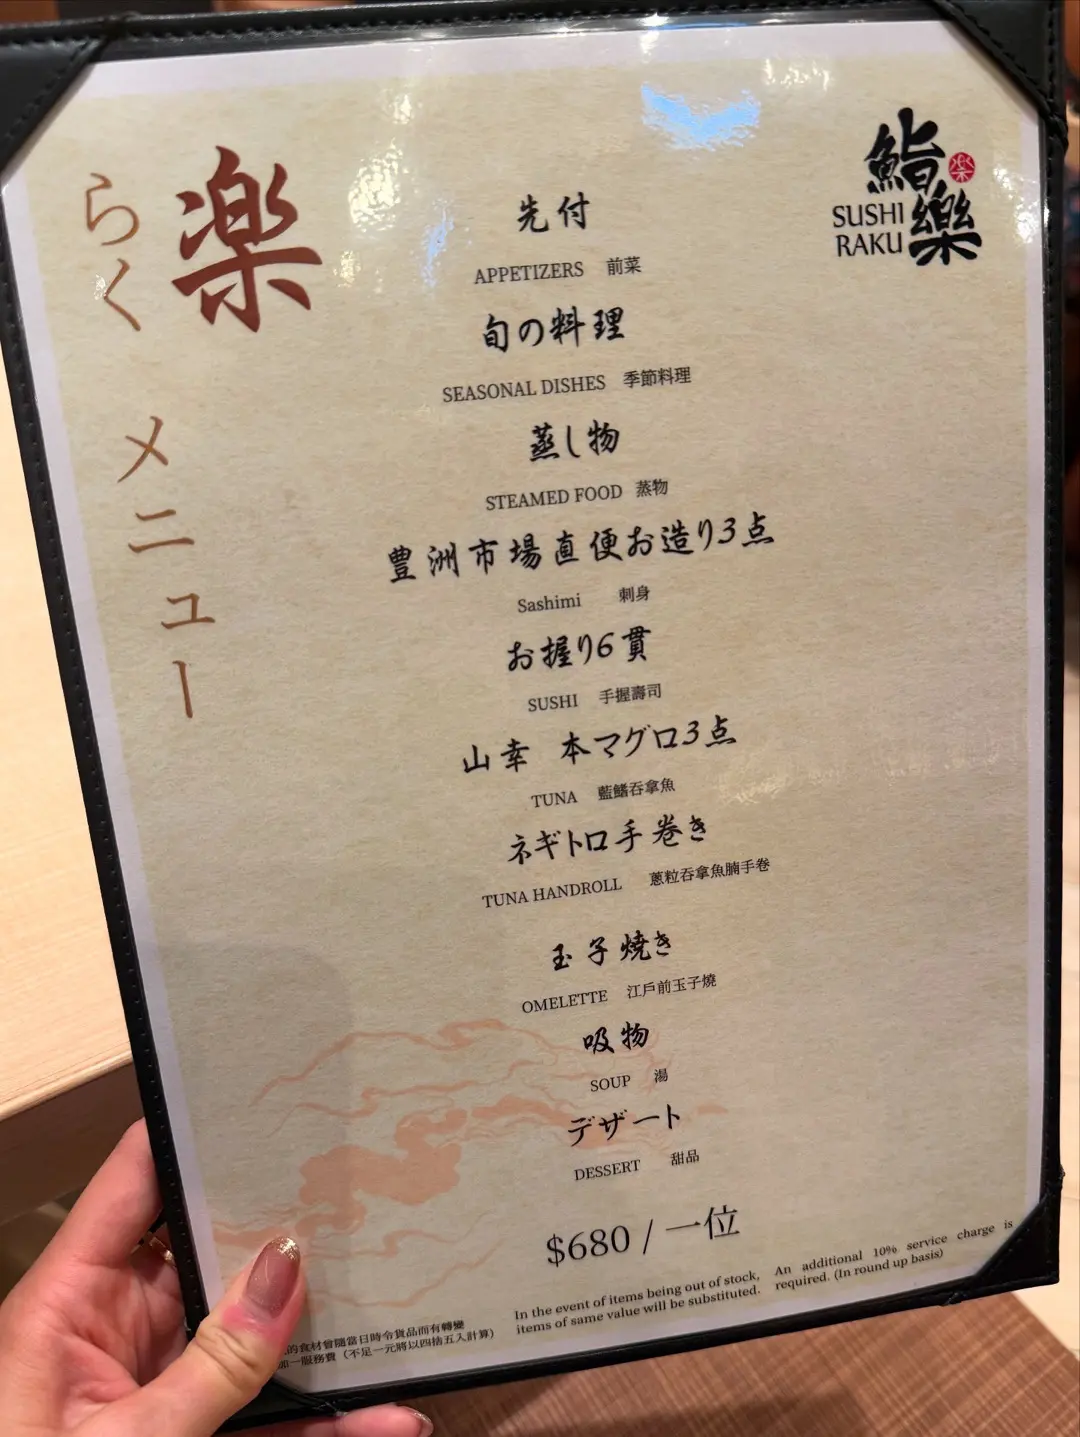 らく
楽
メニュー
鮨樂
楽
SUSHI
RAKU
先付
APPETIZERS 前菜
旬の料理
SEASONAL DISHES 季節料理
蒸し物
STEAMED FOOD 蒸物
豊洲市場直便お造り3点
Sashimi 刺身
お握り6貫
SUSHI 手握壽司
山幸 本マグロ3点
TUNA 藍鰭吞拿魚
ネギトロ手巻き
TUNA HANDROLL 蔥粒吞拿魚腩手卷
玉子焼き
OMELETTE 江戶前玉子燒
吸物
SOUP 湯
デザート
DESSERT 甜品
$680 / 一位
的食材會隨當日時令貨品而有轉變
加一服務費 (不足一元將以四捨五入計算)
In the event of items being out of stock,
items of same value will be substituted.
An additional 10% service charge is
required. (In round up basis)